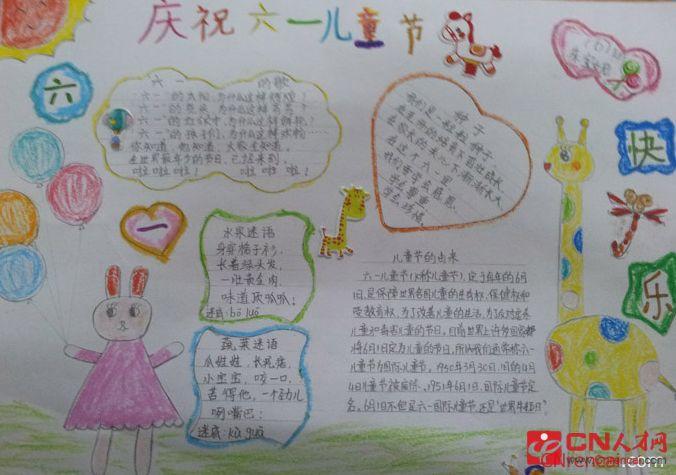 庆祝六一儿童节
六
一
快
乐
六一 的歌
"六一"的太阳,为什么这样
"六一"的
"六一"的红领巾,为什么这样鲜艳?
"六一"的孩子们,为什么这样欢
你知道,他知道,大家全知道,
全世界最年少的节日,已经来到,
啦! 啦! 啦! 啦! 啦! 啦!
种子
我们是一粒粒种子,
在这个六一里,
我们要学会感恩,
学会尊重,
水果迷语
身穿格子衫,
长着绿头发,
一肚黄金肉,
味道顶呱呱。
迷底:bō luó
蔬菜迷语
瓜娃娃,长疙瘩,
小宝宝,咬一口,
苦得他,一个劲儿
咧嘴巴!
迷底:kǔ guā
儿童节的由来
六一儿童节(又称儿童节),定于每年的6月
1日,是保障世界各国儿童的生存权、保健权和
受教育权,为了改善儿童的生活,为了反对虐杀
儿童和毒害儿童的节日,目前世界上许多国家都
将6月1日定为儿童的节日,所以我们通常称六一
儿童节为国际儿童节。1950年3月30日,旧的4月
4日儿童节被废除。1951年6月1日,国际儿童节定
名。6月1日不但是六一国际儿童节,还是"世界牛奶日"
CN人才网
www.cnrencai.com